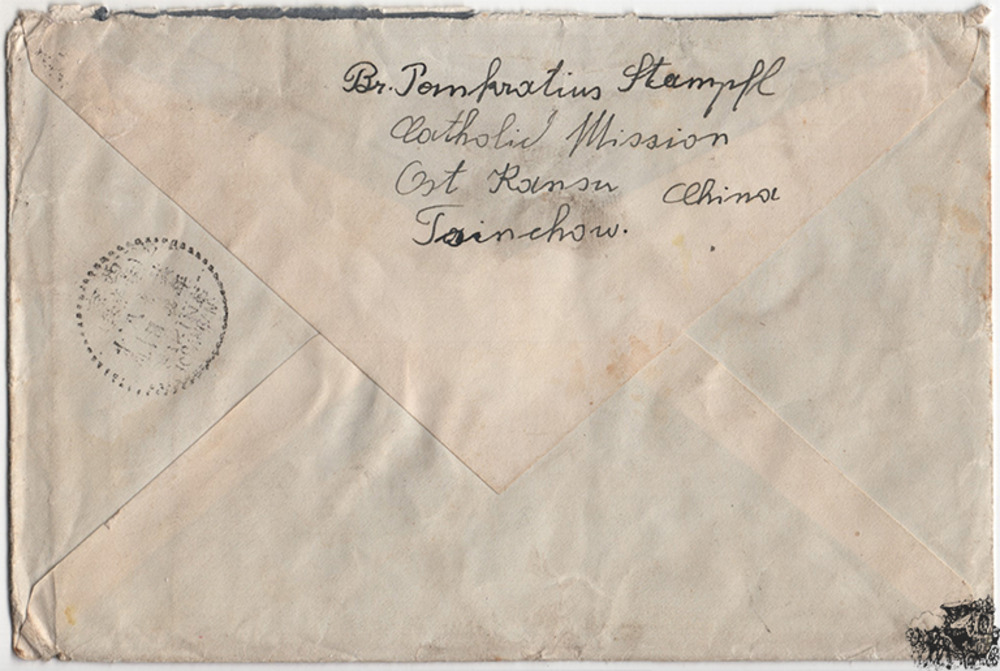 Br. Pankratius Stampfl
Catholic Mission
Ost Kansu China
Tsinchow.